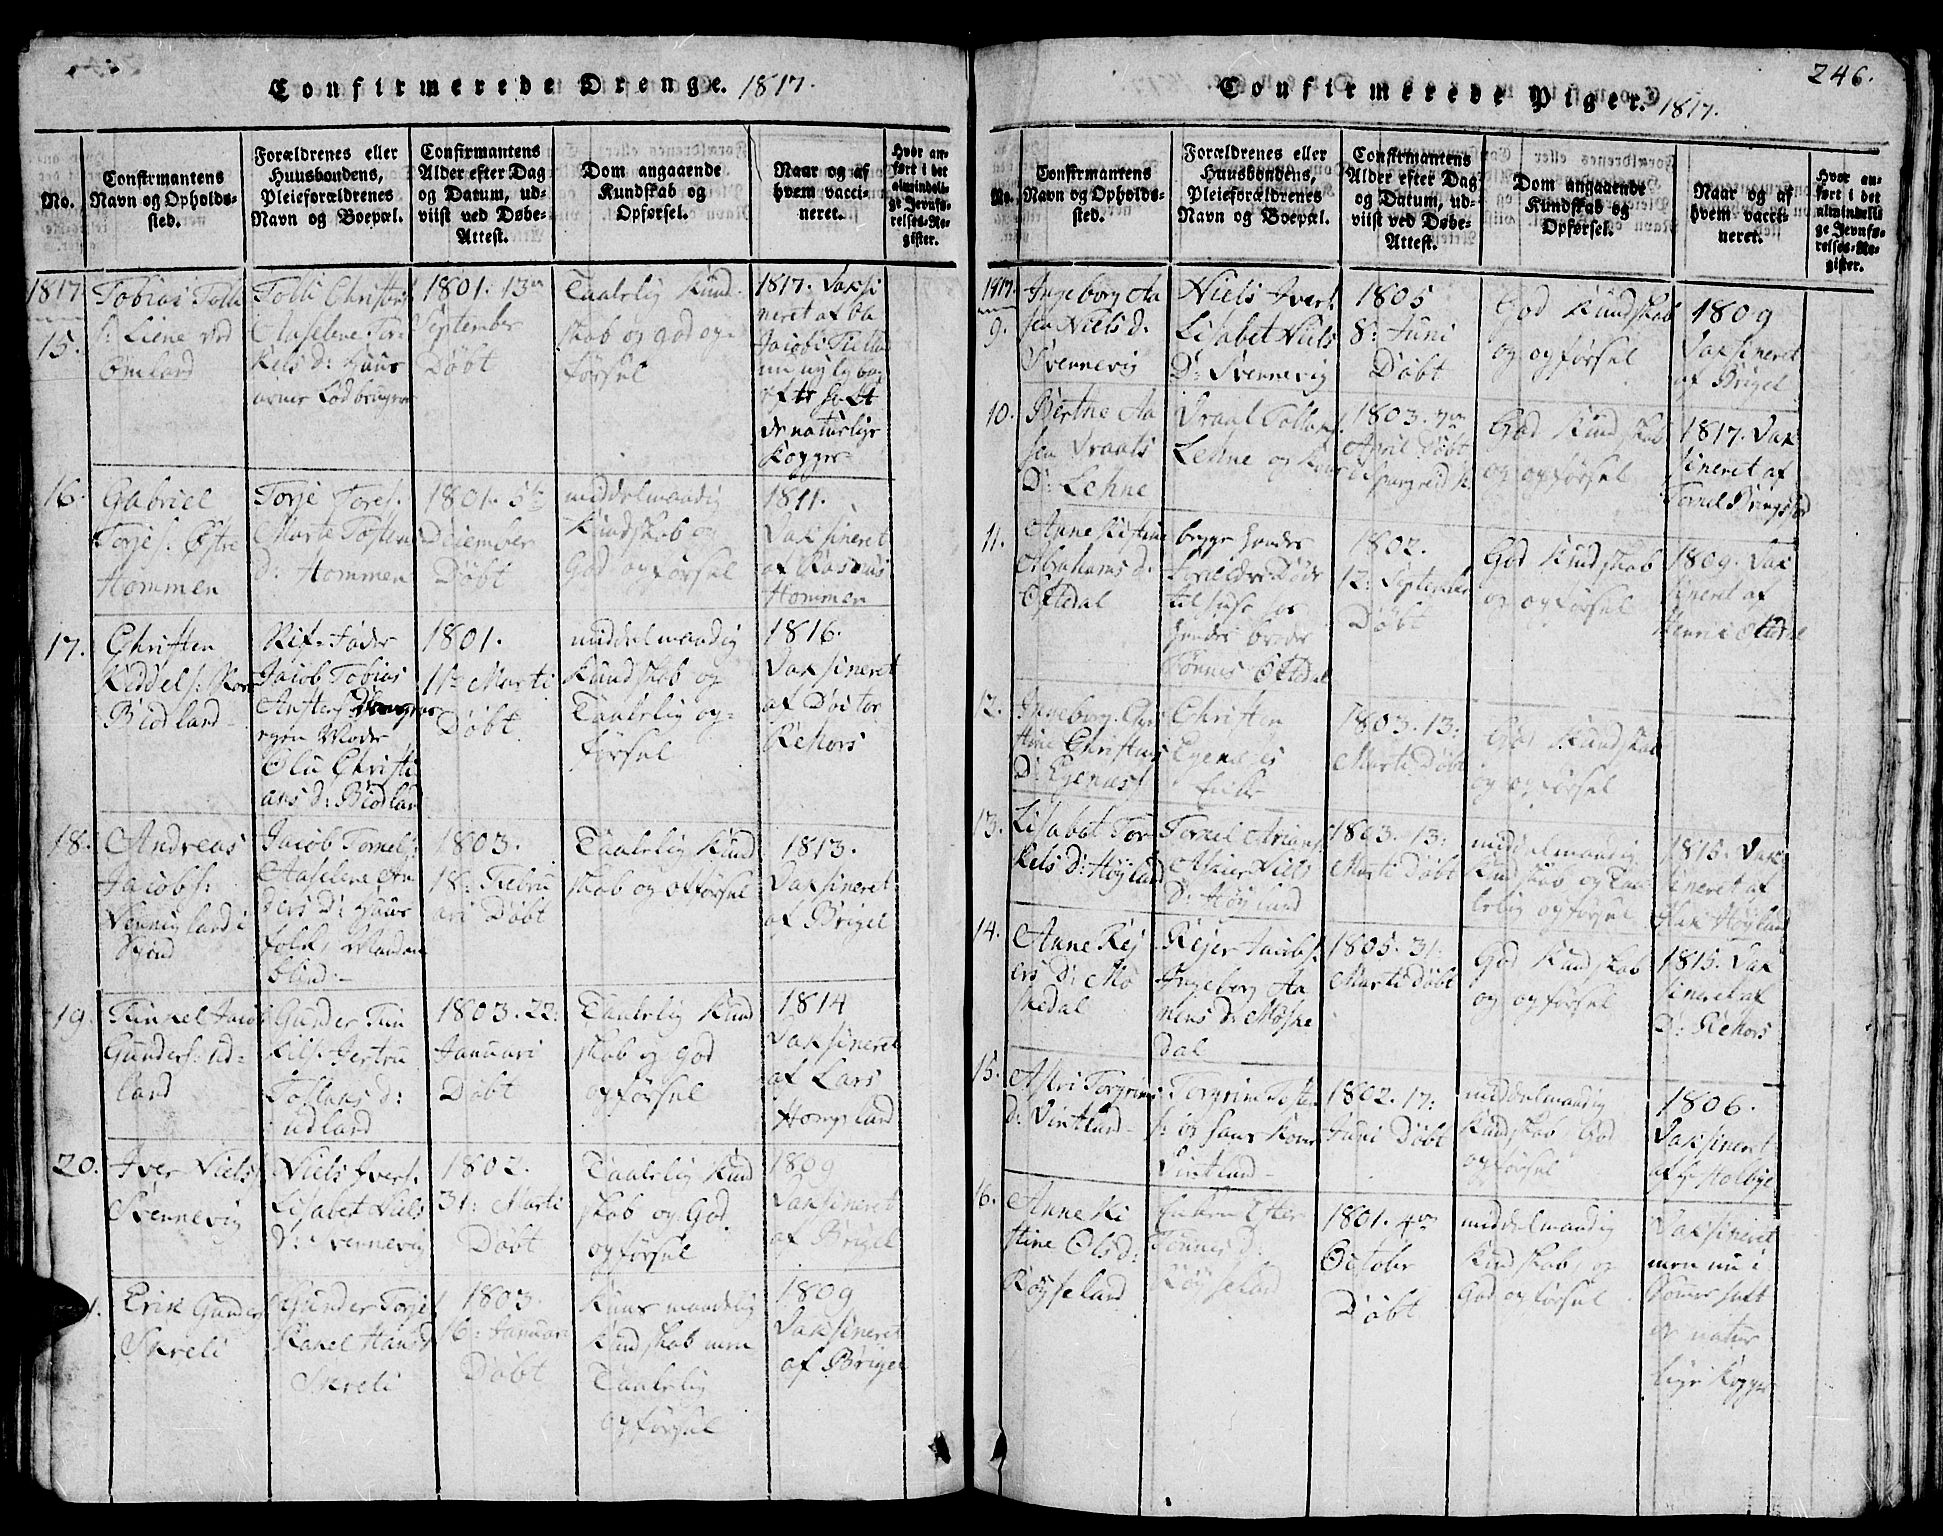 Confirmerede Drenge. 1817.
No.
Confirmantens
Navn og Opholds-
sted.
Forældrenes eller
Huusbondens,
Pleieforældrenes
Navn og Boepæl.
Confirmantens
Alder efter Dag
og Datum, ud-
viist ved Døbe-
Attest.
Dom angaaende
Kundskab og
Opførsel.
Naar og af
hvem vacci-
neret.
Hvor an-
ført i det
almindeli-
ge Jevnfø-
relses-Re-
gister.
1817
15.
Tobias Tolli
s: Liene ved
Ømland
Tolli Christens
Aaselene Tor-
kels d: Huus
1801. 13de
September
Døbt
Taalelig Kund
skab og god op-
førsel
1817. Vaksi
neret af
naturlige
Kopper
16.
Gabriel
Torjes: Østre
Hommen
Torje Tores:
Marte Tostens
d: Hommen
1801. 5te
December
Døbt
middelmaadig
Kundskab og
God opførsel
1811.
Vaksineret
af Rasmus
Hommen
17.
Christen
Keddels:
Bjodland
Jacob Tobias
egen Moder
Christi
ans d: Bjodland
1801.
11te Marti
Døbt
middelmaadig
Kundskab og
Taalelig op-
førsel
1816.
Vaksineret
af Doctor
Rehors
18.
Andreas
Jacobs:
Jacob Tornels:
Aaselene An
ders D: Huus
folk, Manden
blind
1803.
18: Febru
ari Døbt
Taalelig Kund
skab og opførsel
1813.
Vaksineret
af Brigel
19.
Tunnel Jacob
Gunders: ud-
land
Gunder Tun
kils: Jertru
Tollaks d:
udland
1803. 22:
Januari
Døbt
Taalelig Kund
skab og god
opførsel
1814
Vaksineret
af Lars
Hompland
20.
Iver Niels:
Svennevig
Niels Ivers:
Lisabet Niels
d: Svennevig
1802.
31: Marti
Døbt
Taalelig Kund
skab og God
opførsel
1809
Vaksineret
af Brigel
1.
Erik Gunders
Skreli
Gunder Torjes
Rakel Hans d
Skreli
1803.
16: Januari
Døbt
Kuns maadelig
Kundskab men
Taalelig
opførsel
1809
Vaksineret
af Brigel
246.
Confirmerede Piger. 1817.
No.
Confirmantens
Navn og Opholds-
sted.
Forældrenes eller
Huusbondens,
Pleieforældrenes
Navn og Boepæl.
Confirmantens
Alder efter Dag
og Datum, ud-
viist ved Døbe-
Attest.
Dom angaaende
Kundskab og
Opførsel.
Naar og af
hvem vacci-
neret.
Hvor an-
ført i det
almindeli-
ge Jevnfø-
relses-Re-
gister.
1817.
9.
Ingeborg Aa
sea Niels d:
Svennevig
Niels Ivers
Lisabet Niels
D: Svennevig
1805
8: Juni
Døbt
God Kundskab
og opførsel
1809
Vaksineret
af Brigel
10.
Berthe Aa
sea Draals
D: Lehne
Draal Tollans
Lehne og Kone
1803. 7de
April Døbt
God Kundskab
og opførsel
1817. Vak
sineret af
Tornel
11.
Anne Kistine
Abrahams d:
Østedal
begge hendes
Forældre Døde
til huse hos
hendes broder
Tønnes Østedal
1802.
12: September
Døbt
God Kundskab
og opførsel
1809. Vak
sineret af
Henric Østedal
12.
Inneborg Chri
stine Christens
D: Egenæs
Christen
Egenæses
Enke
1803. 13:
Marti Døbt
God Kundskab
og opførsel
13.
Lisabet Tor
kels D: Højland
Tornel Arians:
Niels
D: Højland
1803. 13:
Marti Døbt
middelmaadig
Kundskab og Taa
lelig opførsel
1815. Vak
sineret af
Højland
14.
Anne Rej
ers D: Mo
skedal
Rejer Jacobs:
Ingeborg Aa
nens D: Moske
dal
1805. 31:
Marti Døbt
God Kundskab
og opførsel
1815. Vak
sineret af
D: Rehors
15.
Asbri Torgrims
d: Vintland
Torgrim Tosten
s: og hans Kone
Vintland
1802. 17:
Juni Døbt
middelmaadig
Kundskab God
opførsel
1806.
Vaksineret
af Holbye
16.
Anne Ki
stine Ols d:
Røyseland
Enken Ester
Tønnes D:
Røyseland
1801. 4de
October
Døbt
middelmaadig
Kundskab og
God opførsel
Vaksineret
men nu i
Somer haft
de natur
lige Kopper